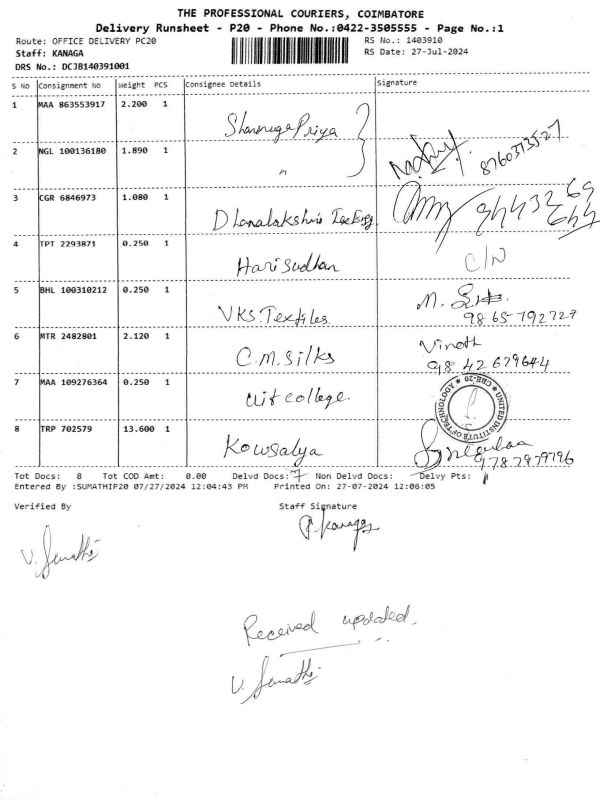 THE PROFESSIONAL COURIERS, COIMBATORE
Delivery Runsheet - P20 - Phone No.:0422-3505555 - Page No.:1
Route: OFFICE DELIVERY PC20 RS No.: 1403910
Staff: KANAGA RS Date: 27-Jul-2024
DRS No.: DCJB140391001
S No Consignment No Weight PCS Consignee Details Signature
1 MAA 863553917 2.200 1 ShanmugaPriya
2 NGL 100136180 1.890 1 "
3 CGR 6846973 1.080 1 Dhanalakshmi
4 TPT 2293871 0.250 1 Harisudhan C/N
5 BHL 100310212 0.250 1 VKS.Textiles. M.
9865792727
6 MTR 2482801 2.120 1 C.M.Silks Vinoth
98 42 679644
7 MAA 109276364 0.250 1 Uit college. UNITED INSTITUTE OF TECHNOLOGY CBE-20
8 TRP 702579 13.600 1 Kowsalya
9787979796
Tot Docs: 8 Tot COD Amt: 0.00 Delvd Docs: 7 Non Delvd Docs: Delvy Pts:
Entered By :SUMATHIP20 07/27/2024 12:04:43 PM Printed On: 27-07-2024 12:06:05
Verified By Staff Signature
P.Kanaga
V. Sumathi
Received updated.
V. Sumathi